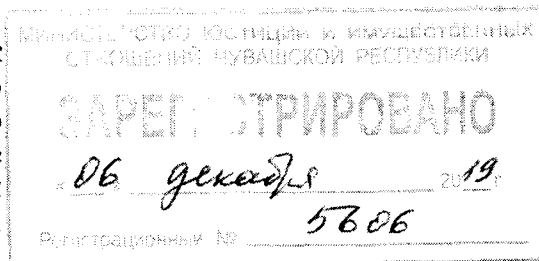 МИНИСТЕРСТВО ЮСТИЦИИ И ИМУЩЕСТВЕННЫХ
ОТНОШЕНИЙ ЧУВАШСКОЙ РЕСПУБЛИКИ
ЗАРЕГИСТРИРОВАНО
« 06 » декабря 2019 г.
Регистрационный № 5606